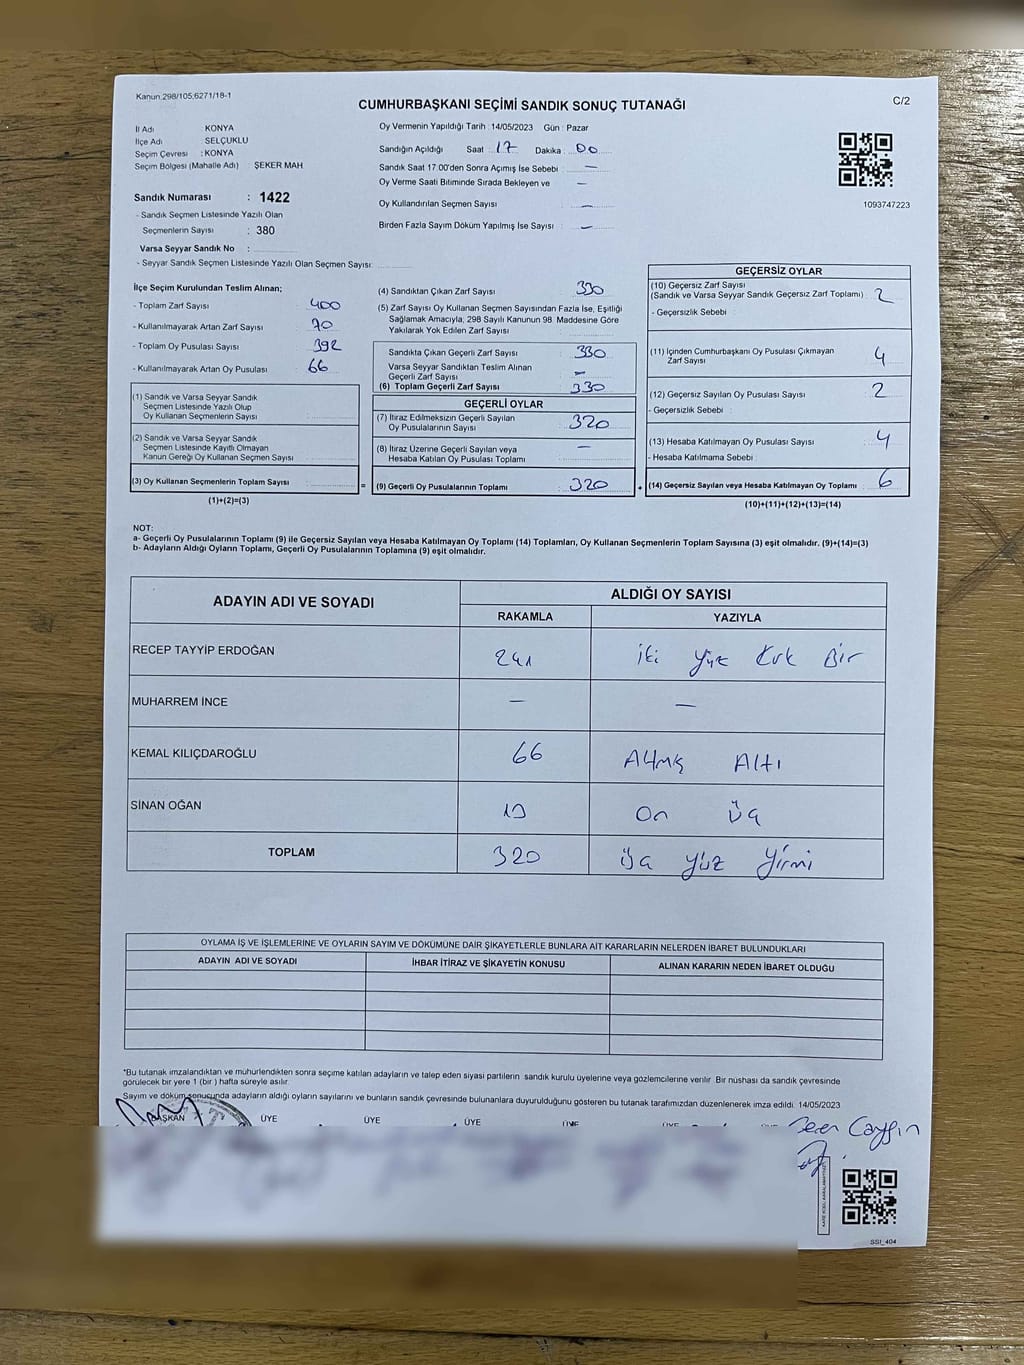 Kanun:298/105;6271/18-1
CUMHURBAŞKANI SEÇİMİ SANDIK SONUÇ TUTANAĞI
C/2
İl Adı KONYA
İlçe Adı SELÇUKLU
Seçim Çevresi : KONYA
Seçim Bölgesi (Mahalle Adı) : ŞEKER MAH.
Sandık Numarası : 1422
- Sandık Seçmen Listesinde Yazılı Olan
Seçmenlerin Sayısı : 380
Varsa Seyyar Sandık No :
- Seyyar Sandık Seçmen Listesinde Yazılı Olan Seçmen Sayısı:
Oy Vermenin Yapıldığı Tarih : 14/05/2023 Gün : Pazar
Sandığın Açıldığı Saat : 17 Dakika : 00
Sandık Saat 17:00'den Sonra Açımış İse Sebebi : —
Oy Verme Saati Bitiminde Sırada Bekleyen ve —
Oy Kullandırılan Seçmen Sayısı : —
Birden Fazla Sayım Döküm Yapılmış İse Sayısı : —
1093747223
İlçe Seçim Kurulundan Teslim Alınan;
- Toplam Zarf Sayısı : 400
- Kullanılmayarak Artan Zarf Sayısı : 70
- Toplam Oy Pusulası Sayısı : 392
- Kullanılmayarak Artan Oy Pusulası : 66
(1) Sandık ve Varsa Seyyar Sandık
Seçmen Listesinde Yazılı Olup
Oy Kullanan Seçmenlerin Sayısı :
(2) Sandık ve Varsa Seyyar Sandık
Seçmen Listesinde Kayıtlı Olmayan
Kanun Gereği Oy Kullanan Seçmen Sayısı :
(3) Oy Kullanan Seçmenlerin Toplam Sayısı : =
(1)+(2)=(3)
(4) Sandıktan Çıkan Zarf Sayısı : 330
(5) Zarf Sayısı Oy Kullanan Seçmen Sayısından Fazla İse, Eşitliği
Sağlamak Amacıyla, 298 Sayılı Kanunun 98. Maddesine Göre
Yakılarak Yok Edilen Zarf Sayısı :
Sandıkta Çıkan Geçerli Zarf Sayısı : 330
Varsa Seyyar Sandıktan Teslim Alınan
Geçerli Zarf Sayısı : —
(6) Toplam Geçerli Zarf Sayısı : 330
GEÇERLİ OYLAR
(7) İtiraz Edilmeksizin Geçerli Sayılan
Oy Pusulalarının Sayısı : 320
(8) İtiraz Üzerine Geçerli Sayılan veya
Hesaba Katılan Oy Pusulası Toplamı : —
(9) Geçerli Oy Pusulalarının Toplamı : 320 +
GEÇERSİZ OYLAR
(10) Geçersiz Zarf Sayısı
(Sandık ve Varsa Seyyar Sandık Geçersiz Zarf Toplamı) : 2
- Geçersizlik Sebebi :
(11) İçinden Cumhurbaşkanı Oy Pusulası Çıkmayan
Zarf Sayısı : 4
(12) Geçersiz Sayılan Oy Pusulası Sayısı : 2
- Geçersizlik Sebebi :
(13) Hesaba Katılmayan Oy Pusulası Sayısı : 4
- Hesaba Katılmama Sebebi :
(14) Geçersiz Sayılan veya Hesaba Katılmayan Oy Toplamı : 6
(10)+(11)+(12)+(13)=(14)
NOT:
a- Geçerli Oy Pusulalarının Toplamı (9) ile Geçersiz Sayılan veya Hesaba Katılmayan Oy Toplamı (14) Toplamları, Oy Kullanan Seçmenlerin Toplam Sayısına (3) eşit olmalıdır. (9)+(14)=(3)
b- Adayların Aldığı Oyların Toplamı, Geçerli Oy Pusulalarının Toplamına (9) eşit olmalıdır.
ADAYIN ADI VE SOYADI ALDIĞI OY SAYISI
RAKAMLA YAZIYLA
RECEP TAYYİP ERDOĞAN 241 iki yüz kırk Bir
MUHARREM İNCE — —
KEMAL KILIÇDAROĞLU 66 Altmış Altı
SİNAN OĞAN 13 On üç
TOPLAM 320 üç yüz yirmi
OYLAMA İŞ VE İŞLEMLERİNE VE OYLARIN SAYIM VE DÖKÜMÜNE DAİR ŞİKAYETLERLE BUNLARA AİT KARARLARIN NELERDEN İBARET BULUNDUKLARI
ADAYIN ADI VE SOYADI İHBAR İTİRAZ VE ŞİKAYETİN KONUSU ALINAN KARARIN NEDEN İBARET OLDUĞU
*Bu tutanak imzalandıktan ve mühürlendikten sonra seçime katılan adayların ve talep eden siyasi partilerin sandık kurulu üyelerine veya gözlemcilerine verilir. Bir nüshası da sandık çevresinde
görülecek bir yere 1 (bir ) hafta süreyle asılır.
Sayım ve döküm sonucunda adayların aldığı oyların sayılarını ve bunların sandık çevresinde bulunanlara duyurulduğunu gösteren bu tutanak tarafımızdan düzenlenerek imza edildi. 14/05/2023
BAŞKAN ÜYE ÜYE ÜYE ÜYE ÜYE
SSI_404